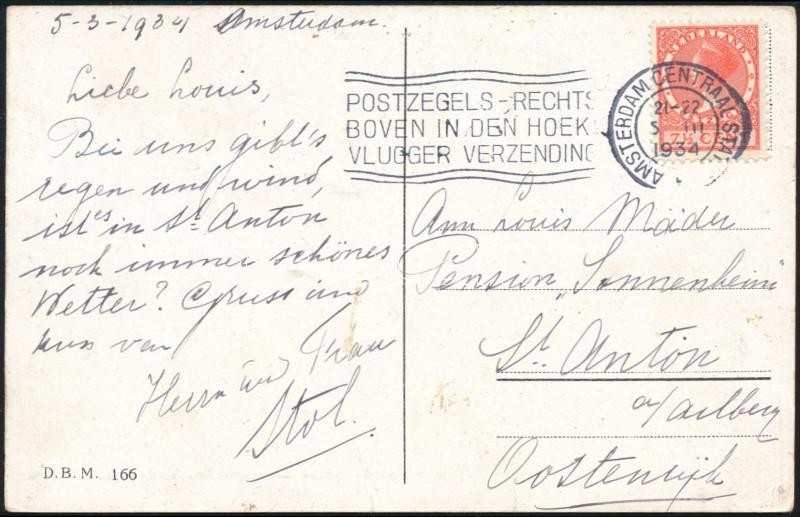 5-3-1934 Amsterdam.
Liebe Louis,
Bei uns gibt's
regen und wind,
ist es in St. Anton
noch immer schönes
Wetter? Gruss und
kuss von
Herrn und Frau
Stol.
D.B.M. 166
POSTZEGELS-RECHTS
BOVEN IN DEN HOEK
VLUGGER VERZENDING
NEDERLAND
AMSTERDAM CENTRAAL STA
21-22
5 III
1934
Ann Louis Mäder
Pension „Sonnenheim
St. Anton
a/arlberg
Oostenrijk